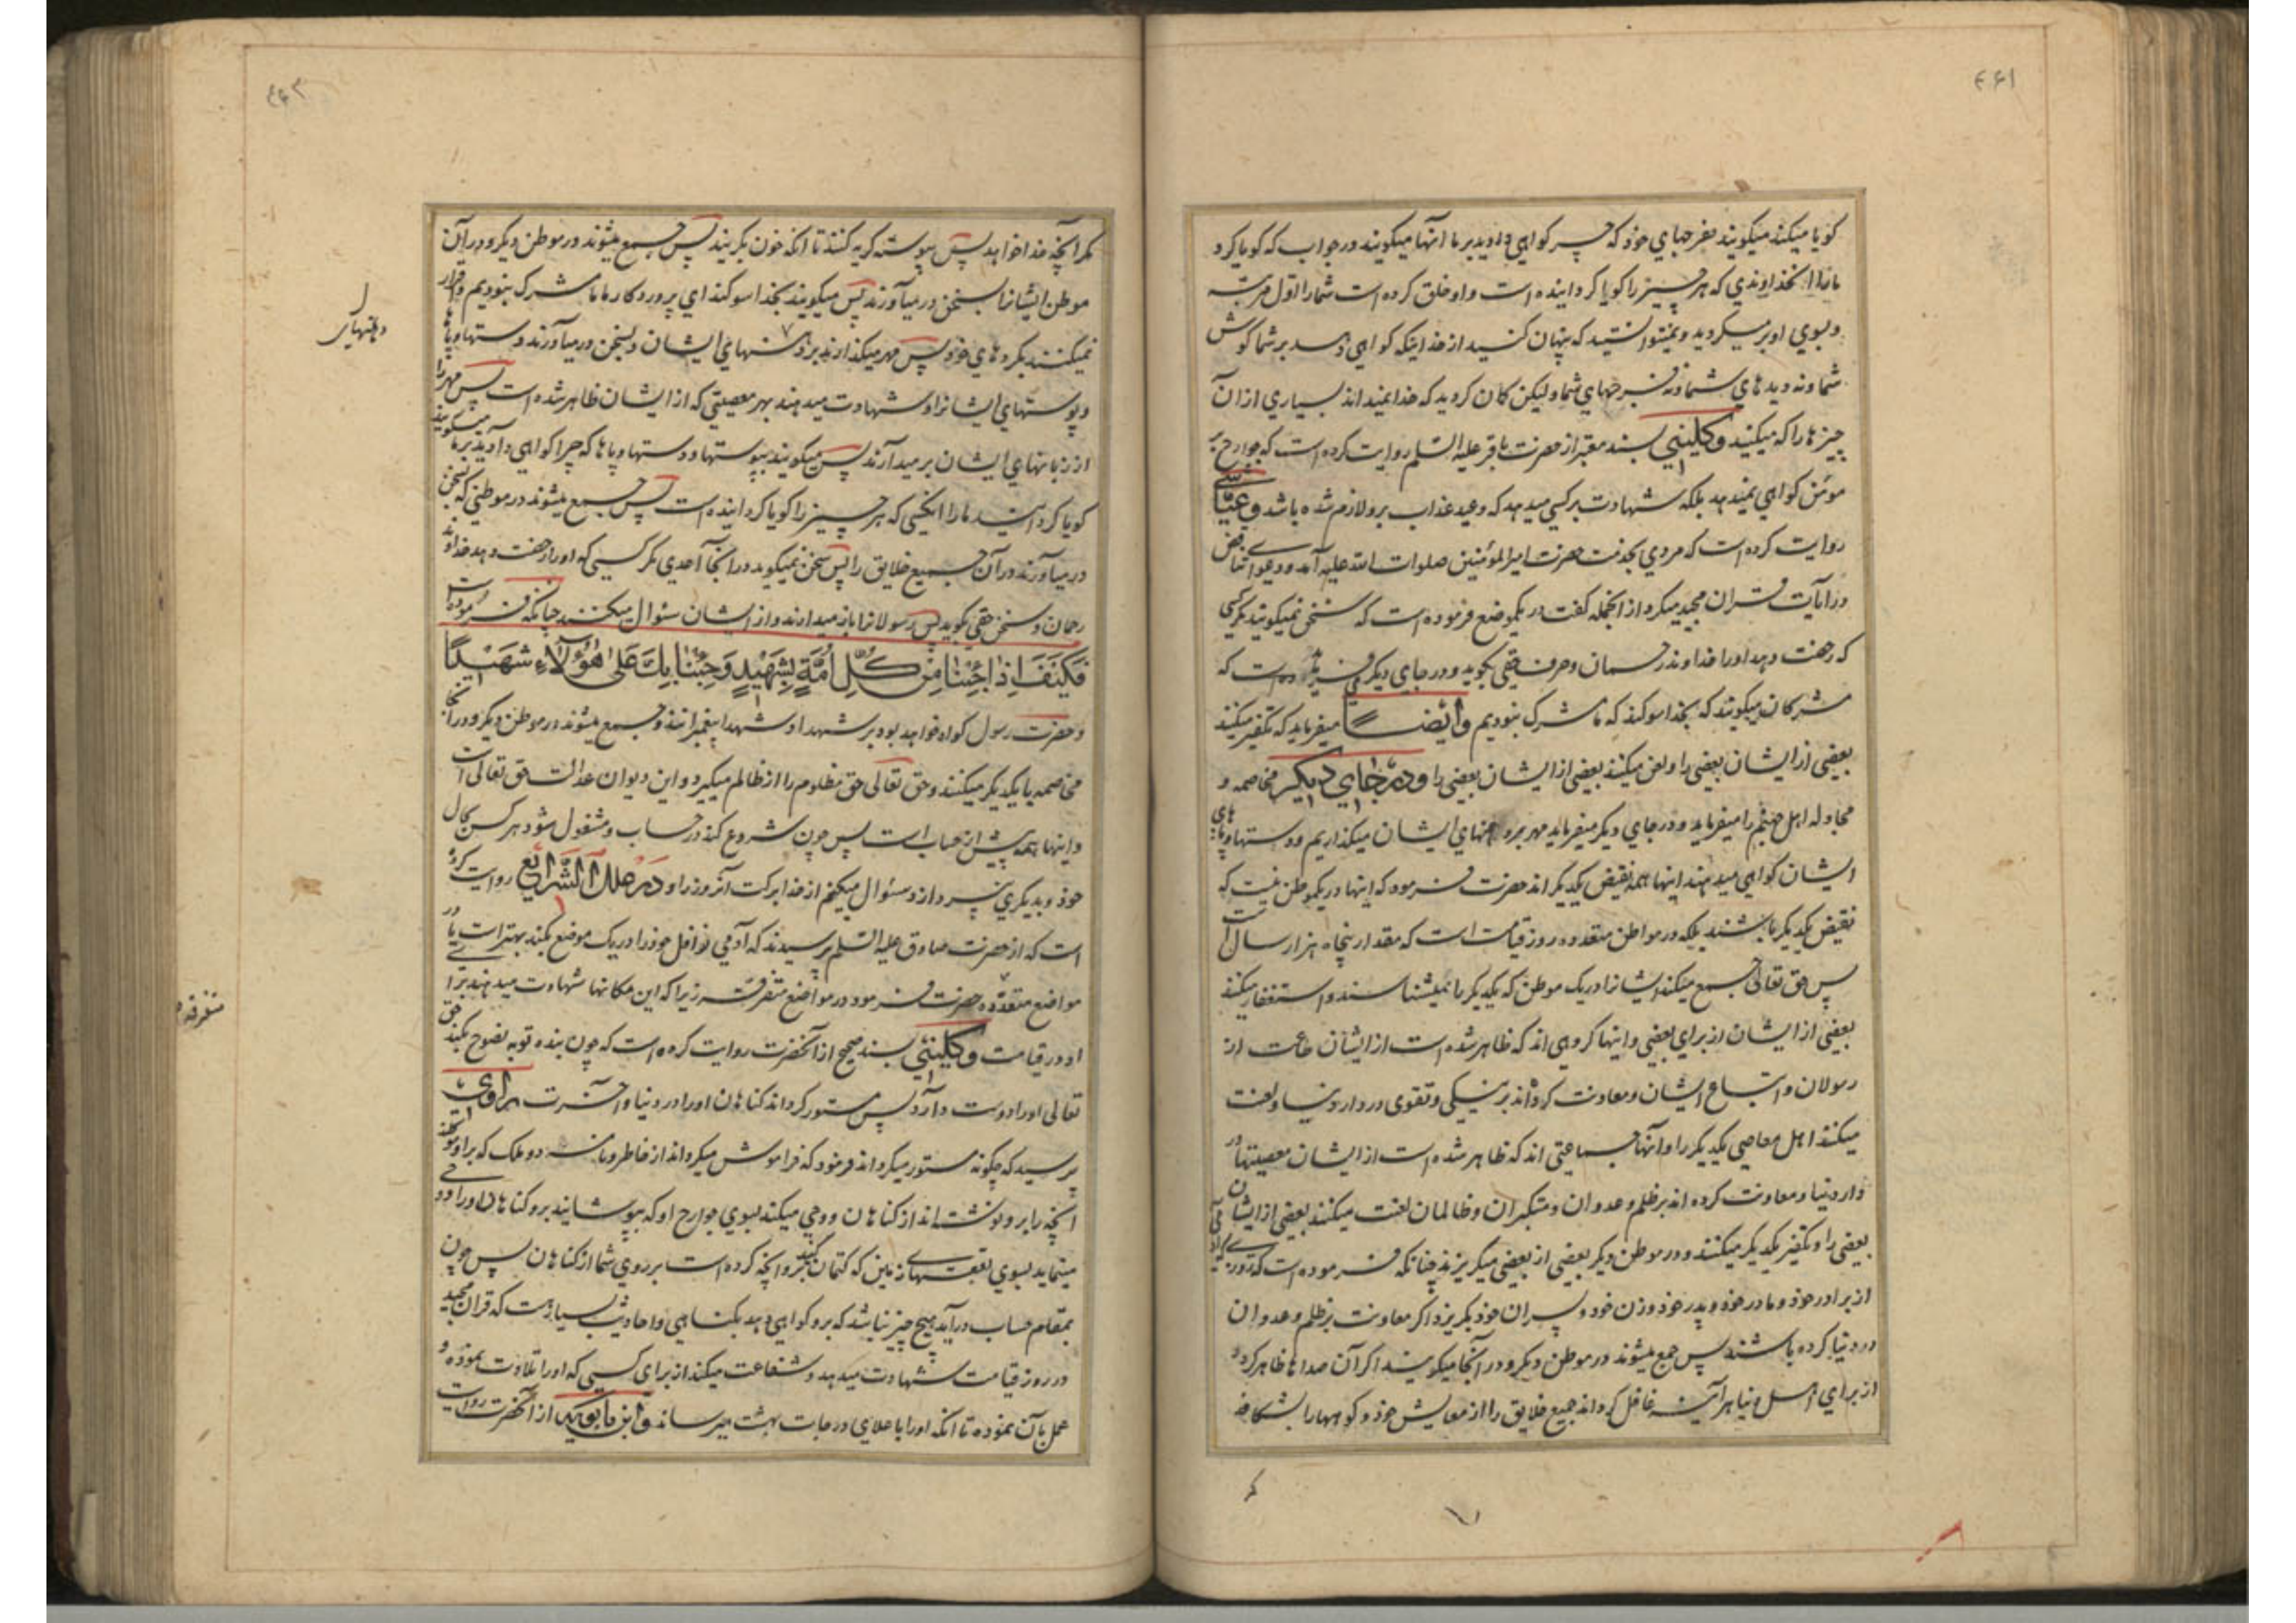 ۴۶۱
کویا میکند میکویند بفرجهای خود که چرا کواهی دادید بر ما آنها میکویند در جواب که کویا کرد
مارا خداوندی که هر چیز را کویا کردانیده است و او خلق کرده است شما را اول مرتبه
و بسوی او بر میکردید و نمیتوانستید که پنهان کنید از خدا اینکه کواهی دهد بر شما کوش
شما و نه دیدهای شما و نه فرجهای شما و لیکن کمان کردید که خدا نمیداند بسیاری از آن
چیزها را که میکنید و کلینی بسند معتبر از حضرت باقر علیه السلم روایت کرده است که جوارح بر
مومن کواهی نمیدهد بلکه شهادت بر کسی میدهد که وعید عذاب برو لازم شده باشد و عیاشی
روایت کرده است که مردی بخدمت حضرت امیر المؤمنین صلوات الله علیه آمد و دعوای تناقض
در آیات قران مجید میکرد از انجمله کفت در یکموضع فرموده است که سخن نمیکویند مکر کسی
که رخصت دهد او را خداوند رحمان و حرف حقی بکوید و در جای دیکر فرموده است که
مشرکان میکویند که بخدا سوکند که ما مشرک نبودیم و ایضا میفرماید که تکفیر میکنند
بعضی از ایشان بعضی را و لعن میکنند بعضی از ایشان بعضی را و در جای دیکر مخاصمه و
مجادله اهل جهنم را میفرماید و در جای دیکر میفرماید مهر بر دهنهای ایشان میکذاریم و دستها و پاهای
ایشان کواهی میدهند اینها همه نقیض یکدیکراند حضرت فرمود که اینها در یکموطن نیست که
نقیض یکدیکر باشند بلکه در مواطن متعدده روز قیامت است که مقدار پنجاه هزار سال است
پس حق تعالی جمع میکند ایشانرا در یک موطن که یکدیکر را نمیشناسند و استغفار میکنند
بعضی از ایشان از برای بعضی و اینها کروهی اند که ظاهر شده است از ایشان طاعت از
رسولان و اتباع ایشان و معاونت کرده اند بر نیکی و تقوی در دار دنیا و لعنت
میکنند اهل معاصی یکدیکر را و آنها جماعتی اند که ظاهر شده است از ایشان معصیتها در
دار دنیا و معاونت کرده اند بر ظلم و عدوان و متکبران و ظالمان لعنت میکنند بعضی از ایشان
بعضی را و تکفیر یکدیکر میکنند و در موطن دیکر بعضی از بعضی میکریزند چنانکه فرموده است که روزی که آدمی
از برادر خود و مادر خود و پدر خود و زن خود و پسران خود بکریزد اکر معاونت بر ظلم و عدوان
در دنیا کرده باشند پس جمع میشوند در موطن دیکر و در آنجا میکریند اکر آن صداها ظاهر کردد
از برای اهل دنیا هر آینه غافل کرداند جمیع خلایق را از معایش خود و کوهها را بشکافد
۴۶۲
مکر آنچه خدا خواهد پس پیوسته کریه کنند تا آنکه خون بکریند پس جمع میشوند در موطن دیکر و در آن
موطن ایشانرا بسخن در میآورند پس میکویند بخدا سوکند ای پروردکار ما ما مشرک نبودیم و اقرار
نمیکنند بکردهای خود پس مهر میکذارند بر دهنهای ایشان و بسخن در میآورند دستها و پاها
و پوستهای ایشانرا و شهادت میدهند بهر معصیتی که از ایشان ظاهر شده است پس مهر را
از زبانهای ایشان بر میدارند پس میکویند بپوستها و دستها و پاها که چرا کواهی دادید بر ما میکویند
کویا کردانید مارا آنکسی که هر چیز را کویا کردانیده است پس جمع میشوند در موطنی که بسخن
در میآورند در آن جمیع خلایق را پس سخن نمیکوید در آنجا احدی مکر کسی که او را رخصت دهد خداوند
رحمان و سخن حقی بکوید پس رسولانرا باز میدارند و از ایشان سئوال میکنند چنانکه فرموده است
فَکَیْفَ اِذَا جِئْنَا مِن کُلِّ اُمَّةٍ بِشَهِیْدٍ وَجِئْنَا بِكَ عَلَی هٰؤُلَاءِ شَهِیْدًا
و حضرت رسول کواه خواهد بود بر شهدا و شهدا پیغمبرانند و جمع میشوند در موطن دیکر و در آنجا
مخاصمه با یکدیکر میکنند و حق تعالی حق مظلوم را از ظالم میکیرد و این دیوان عدالت حق تعالی است
و اینها همه پیش از حساب است پس چون شروع کند در حساب و مشغول شود هر کس بحال
خود و بدیکری نپردازد و سئوال میکنم از خدا برکت آنروز را و در علل الشرایع روایت کرده
است که از حضرت صادق علیه السلم پرسیدند که آدمی نوافل خود را در یک موضع بکند بهتر است یا در
مواضع متعدده حضرت فرمود در مواضع متفرقه زیرا که این مکانها شهادت میدهند برای
او در قیامت و کلینی بسند صحیح از آنحضرت روایت کرده است که چون بنده توبه نصوح بکند حق
تعالی او را دوست دارد پس مستور کرداند کناهان او را در دنیا و آخرت راوی
پرسید که چکونه مستور میکرداند فرمود که فراموش میکرداند از خاطر دو ملک که بر او موکلند
آنچه را برو نوشته اند از کناهان و وحی میکند بسوی جوارح او که بپوشانید برو کناهان او را و وحی
مینماید بسوی بقعتهای زمین که کتمان کنید آنچه کرده است بر روی شما از کناهان پس چون
بمقام حساب در آید هیچ چیز نباشد که برو کواهی دهد بکناهی و احادیث بسیار است که قران مجید
در روز قیامت شهادت میدهد و شفاعت میکند از برای کسی که او را تلاوت نموده و
عمل بآن نموده تا آنکه او را باعلای درجات بهشت میرساند و ابن بابویه از آنحضرت روایت
دهنهای
متفرقه